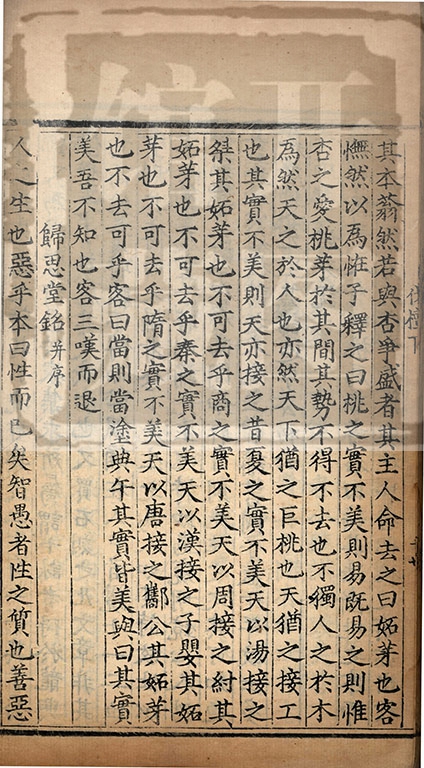 其本蓊然若與杏爭盛者其主人命去之曰妬芽也客
憮然以為恠予釋之曰桃之實不美則易旣易之則惟
杏之愛桃芽於其間其勢不得不去也不獨人之於木
為然天之於人也亦然天下猶之巨桃也天猶之接工
也其實不美則天亦接之昔夏之實不美天以湯接之
桀其妬芽也不可去乎商之實不美天以周接之紂其
妬芽也不可去乎秦之實不美天以漢接之子嬰其妬
芽也不可去乎隋之實不美天以唐接之酅公其妬芽
也不去可乎客曰當則當塗典午其實皆美與曰其實
美吾不知也客三嘆而退
歸思堂銘并序
人之生也惡乎本曰性而已矣智愚者性之質也善惡